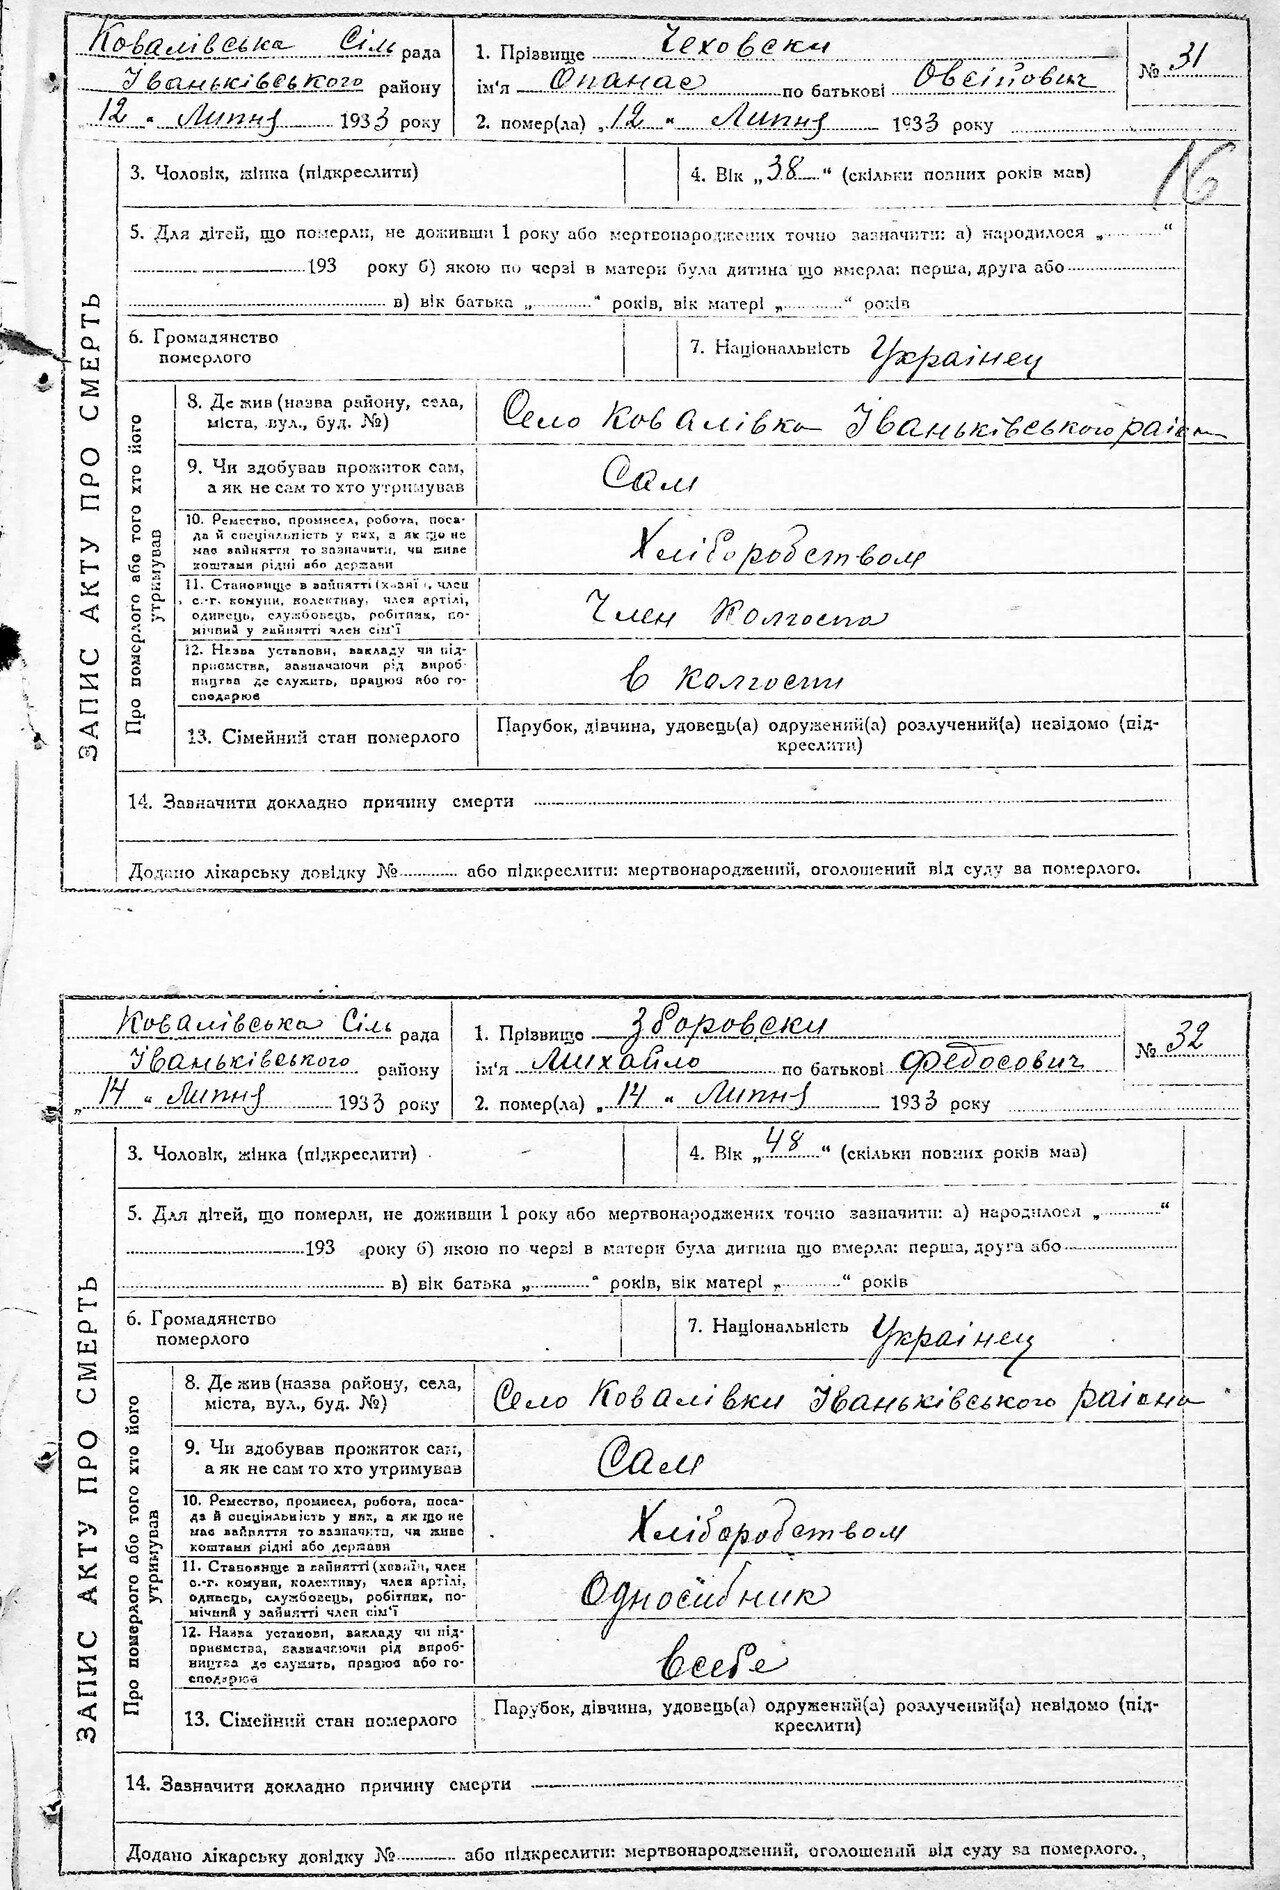 Ковалівська Сіль рада
Іваньківського району
12 " Липня 1933 року
1. Прізвище Чеховски
ім'я Опанас по батькові Овсійович
2. помер(ла) „12 " Липня 1933 року
№ 31
16
3. Чоловік, жінка (підкреслити)
4. Вік „38" (скільки повних років мав)
5. Для дітей, що померли, не доживши 1 року або мертвонароджених точно зазначити: а) народилося „ “
193 року б) якою по черзі в матери була дитина що вмерла: перша, друга або
в) вік батька „ “ років, вік матері „ “ років
6. Громадянство
померлого
7. Національність Украінец
ЗАПИС АКТУ ПРО СМЕРТЬ
Про померлого або того хто його
утримував
8. Де жив (назва району, села,
міста, вул., буд. №)
Село Ковалівка Іваньківського раіон
9. Чи здобував прожиток сам,
а як не сам то хто утримував
Сам
10. Ремество, промисел, робота, поса-
да й спеціяльність у них, а як що не
має зайняття то зазначити, чи живе
коштами рідні або держави
Хліборобством
11. Становище в зайнятті (хазяї , член
с.-г. комуни, колективу, член артілі,
одинець, службовець, робітник, по-
мічний у зайнятті член сім'ї
Член Колгоспа
12. Назва установи, закладу чи під-
приємства, зазначаючи рід вироб-
ництва де служить, працює або го-
сподарює
в колгоспи
13. Сімейний стан померлого
Парубок, дівчина, удовець(а) одружений(а) розлучений(а) невідомо (під-
креслити)
14. Зазначити докладно причину смерти
Додано лікарську довідку № або підкреслити: мертвонароджений, оголошений від суду за померлого.
Ковалівська Сіль рада
Іваньківського району
„14 " Липня 1933 року
1. Прізвище Зборовски
ім'я Михайло по батькові Федосович
2. помер(ла) „14 " Липня 1933 року
№ 32
3. Чоловік, жінка (підкреслити)
4. Вік „48" (скільки повних років мав)
5. Для дітей, що померли, не доживши 1 року або мертвонароджених точно зазначити: а) народилося „ “
193 року б) якою по черзі в матери була дитина що вмерла: перша, друга або
в) вік батька „ “ років, вік матері „ “ років
6. Громадянство
померлого
7. Національність Украінец
ЗАПИС АКТУ ПРО СМЕРТЬ
Про померлого або того хто його
утримував
8. Де жив (назва району, села,
міста, вул., буд. №)
Село Ковалівки Іваньківського раіона
9. Чи здобував прожиток сам,
а як не сам то хто утримував
Сам
10. Ремество, промисел, робота, поса-
да й спеціяльність у них, а як що не
має зайняття то зазначити, чи живе
коштами рідні або держави
Хліборобством
11. Становище в зайнятті (хазяїн, член
с.-г. комуни, колективу, член артілі,
одинець, службовець, робітник, по-
мічний у зайнятті член сім'ї
Односібник
12. Назва установи, закладу чи під-
приємства, зазначаючи рід вироб-
ництва де служить, працює або го-
сподарює
всебе
13. Сімейний стан померлого
Парубок, дівчина, удовець(а) одружений(а) розлучений(а) невідомо (під-
креслити)
14. Зазначити докладно причину смерти
Додано лікарську довідку № або підкреслити: мертвонароджений, оголошений від суду за померлого.